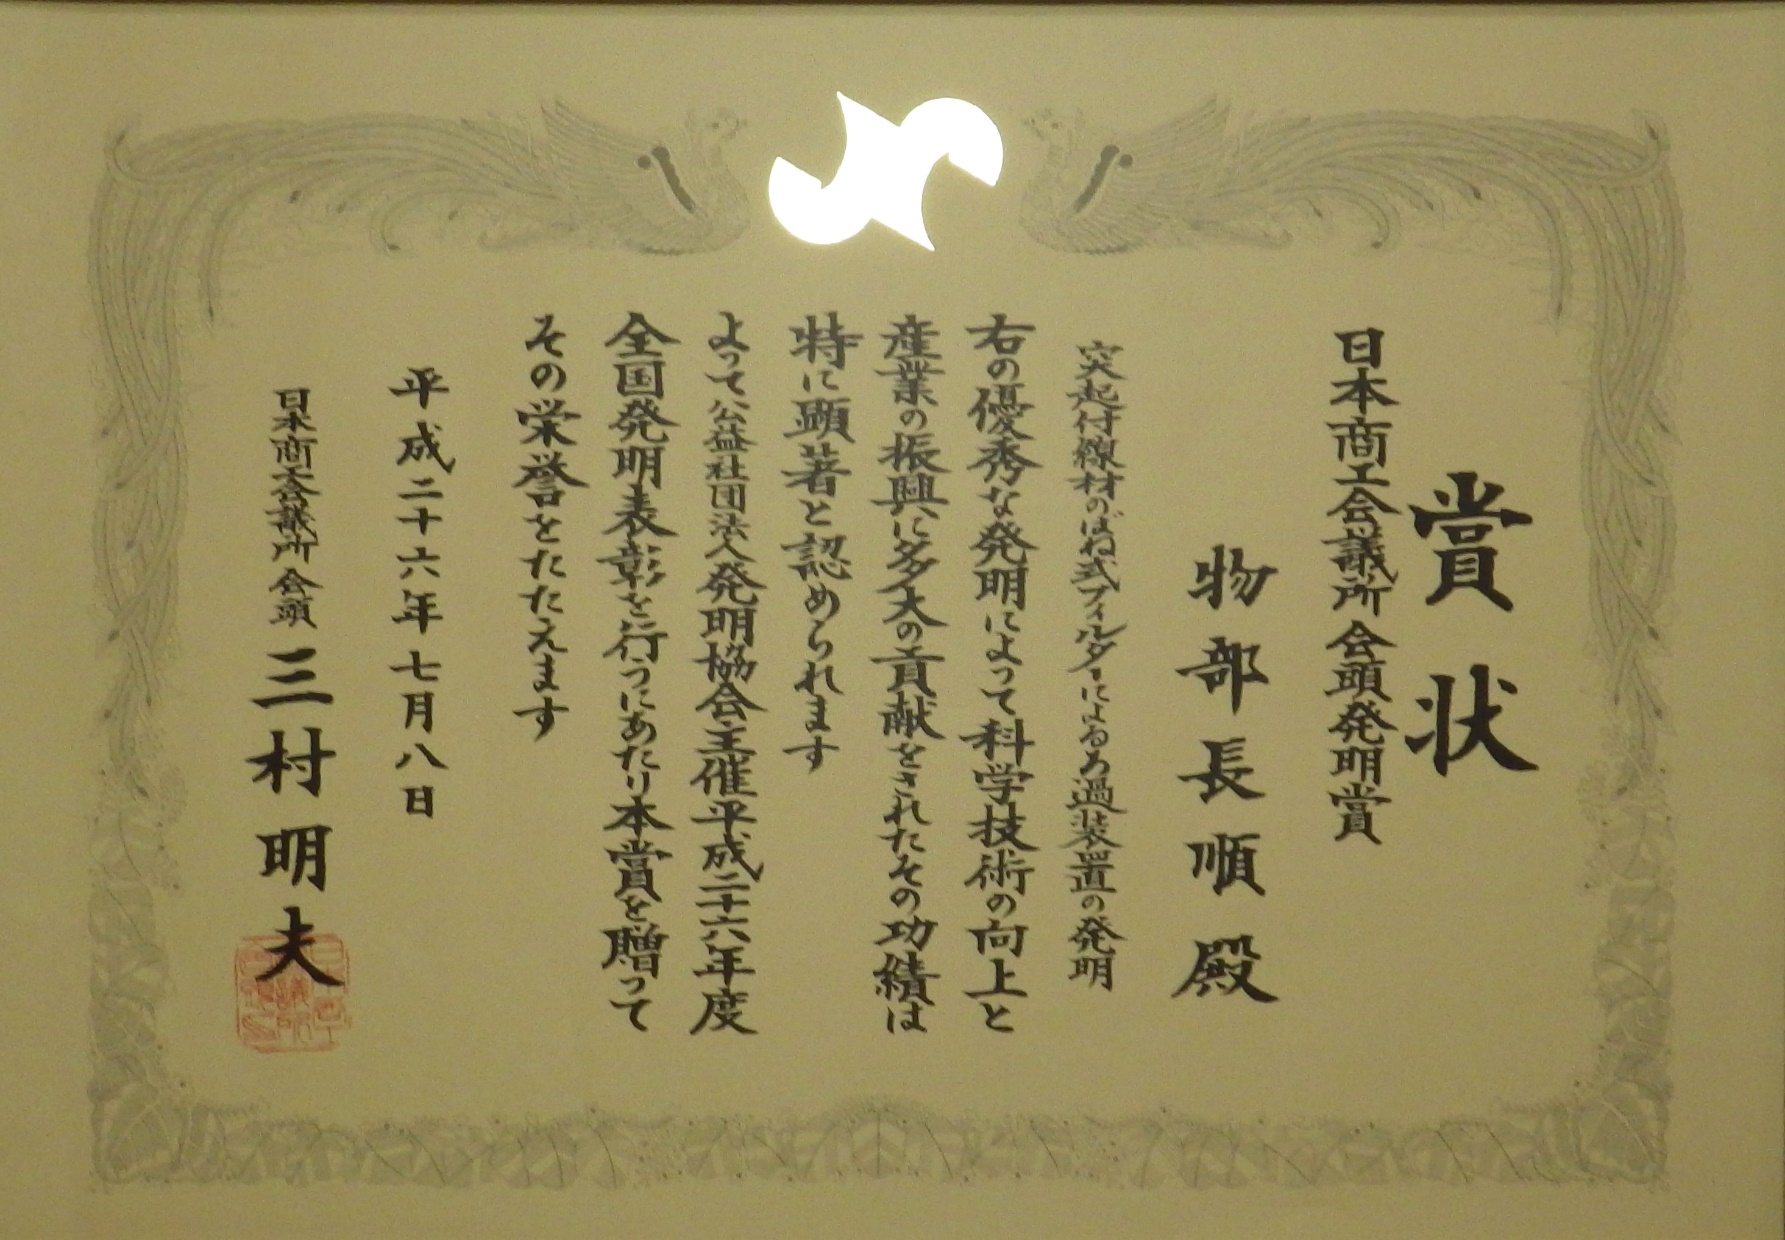 賞状
日本商工会議所会頭発明賞
物部長順殿
突起付線材のばね式フィルターによるろ過装置の発明
右の優秀な発明によって科学技術の向上と
産業の振興に多大の貢献をされたその功績は
特に顕著と認められます
よって公益社団法人発明協会主催平成二十六年度
全国発明表彰を行うにあたり本賞を贈って
その栄誉をたたえます
平成二十六年七月八日
日本商工会議所会頭 三村明夫